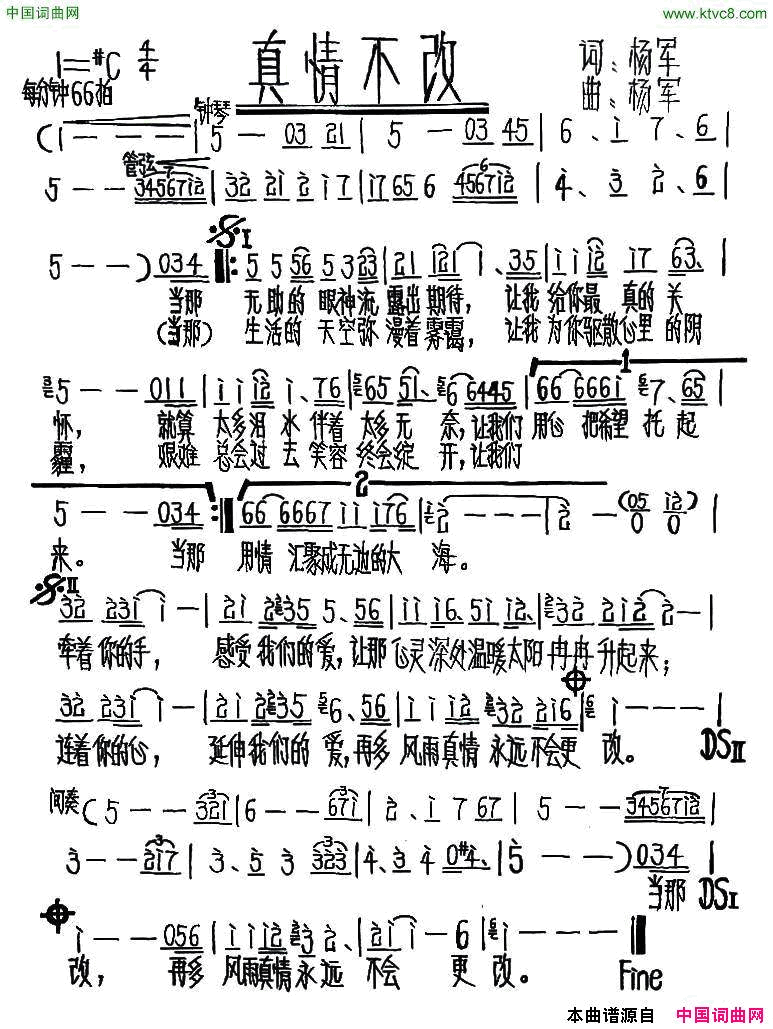 中国词曲网 www.ktvc8.com
1=#C 4/4 真情不改 词:杨军
每分钟66拍 曲:杨军
钟琴
(1 - - - | 5 - 03 21 | 5 - 03 45 | 6、i 7、6 |
管弦
5 - - 34567i2 | 32 2i 2 i7 | i7 65 6 4567i2 | 4、3 2、6 |
𝄋I
5 - - ) 034 |: 5 5 56 5 3 23 | 21 121 1、35 | i i i2 i7 63、|
当那 无助的 眼神流露出期待, 让我给你最 真的关
(当那) 生活的 天空弥漫着雾霭, 让我为你驱散心里的阴
1
5 - - 011 | i i i2 i、76 | 65 51、6 6445 | 66 666i 7、65 |
怀, 就算 太多泪水伴着太多无 奈,让我们 用心 把希望 托起
霾, 艰难 总会过去笑容终会绽 开,让我们
2
5 - - 034 :| 66 6667 i i i76 | 2 - - - | 2 - (05 i2 |
0 0
来。 当那 用情 汇聚成无边的大 海。
𝄋II
32 23i i - | 2i 2 35 5、56 | i i i6、5i i2、| 32 2i2 2 - |
牵着你的手, 感受我们的爱,让那 心灵深处温暖太阳冉冉升起来;
32 23i i - | 2i 2 35 6、56 | i i i2 32 2i6 | i - - - |
连着你的心, 延伸我们的 爱,再多 风雨真情 永远不会更 改。 DSII
间奏 (5 - - 32i | 6 - - 67i | 2、i 7 67 | 5 - - 34567i2 |
3 - - 2i7 | 3、5 3 323 | 4、3 4 0#4、| 5 - - ) 034 |
当那 DSI
i - - 056 | i i i2 3 2、| 2i i - 6 | i - - - ‖
改, 再多 风雨真情永远 不会 更 改。 Fine
本曲谱源自 中国词曲网